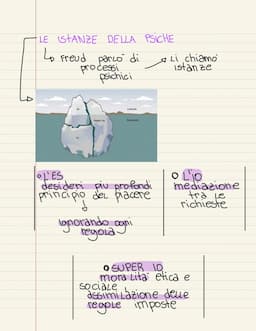 LE ISTANZE DELLA PSICHE
Freud parlò di
processi
psichici
li chiamò
istanze
L'ES
desideri più profondi
principio del piacere
ignorando ogni
regola
L'io
mediazione
tra le
richieste
SUPER IO
moralità etica e
sociale
assimilazione delle
regole imposte